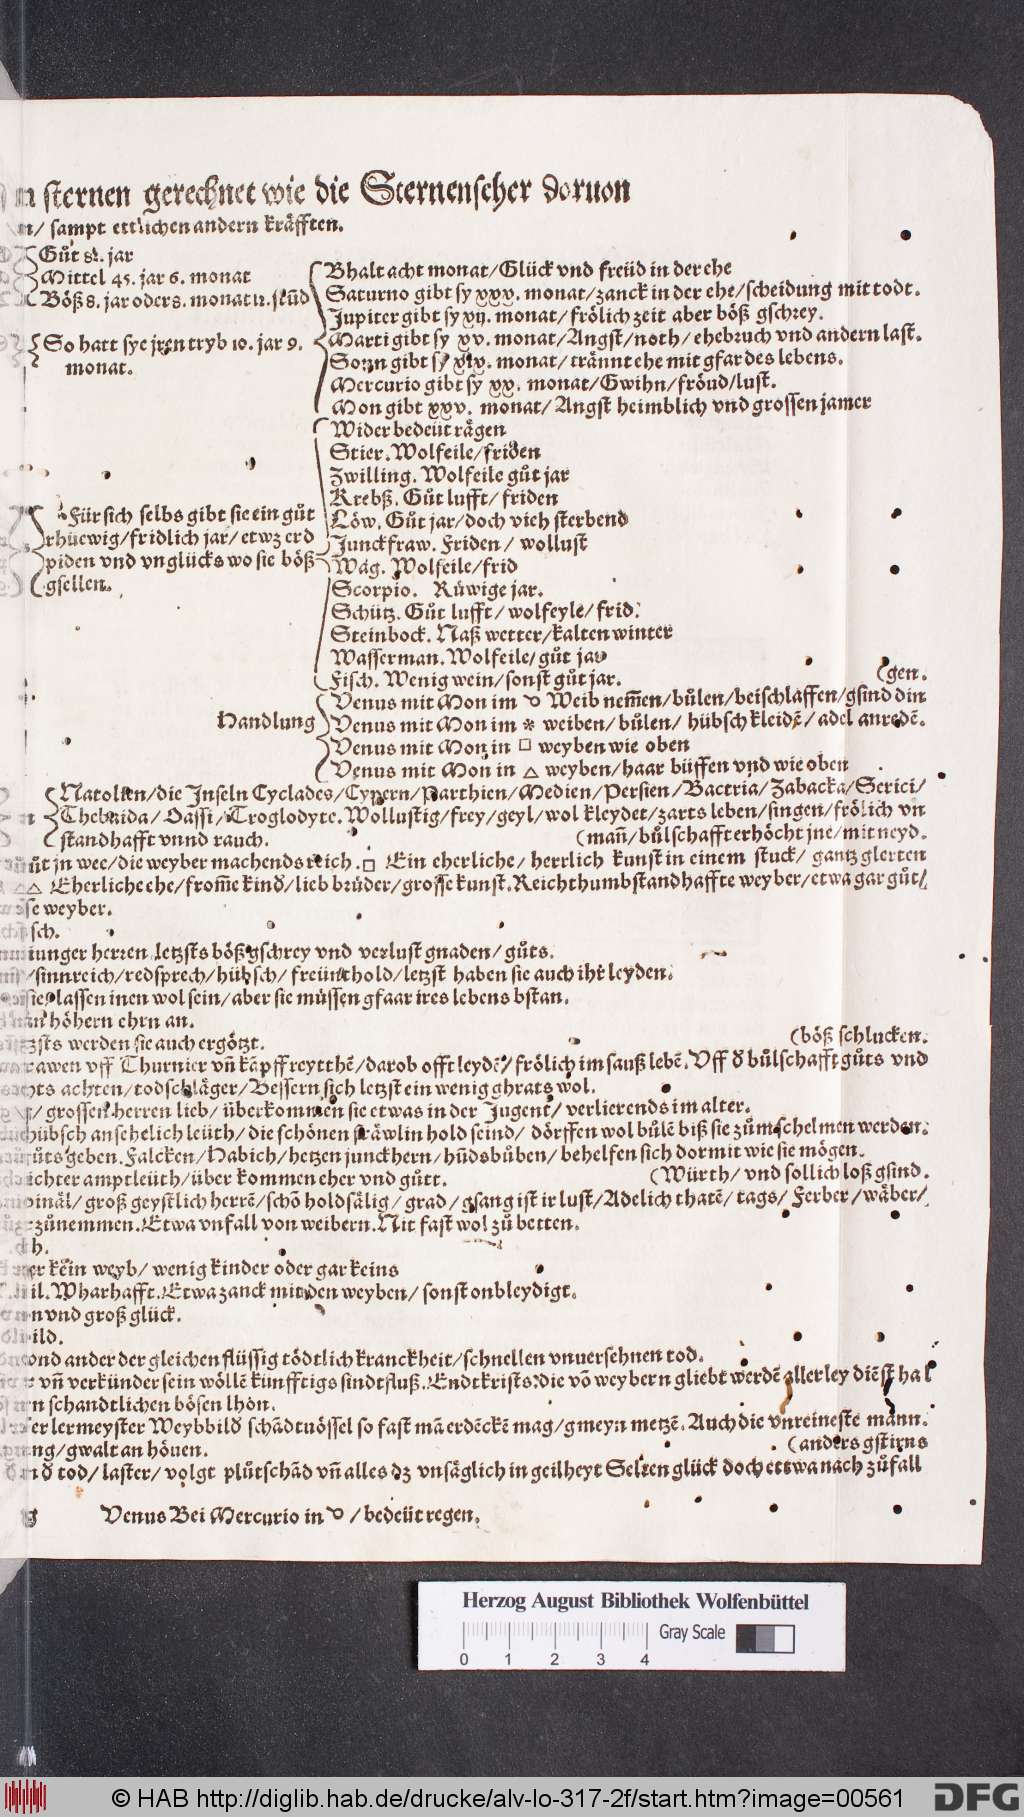 sternen gerechnet wie die Sternenseher doruon
/ sampt ettlichen andern kräfften.
Gůt 81. jar
Mittel 45. jar 6. monat
Böß 8. jar oder 8. monat 12. stūd
So hatt sye jren tryb 10. jar 9.
monat.
Bhalt acht monat/ Glück vnd freüd in der ehe
Saturno gibt sy xxxv. monat/ zanck in der ehe/ scheidung mit todt.
Jupiter gibt sy xij. monat/ frölich zeit aber böß gschrey.
Marti gibt sy xv. monat/ Angst/ noth/ ehebruch vnd andern last.
Sonn gibt sy xix. monat/ trännt ehe mit gfar des lebens.
Mercurio gibt sy xx. monat/ Gwihn/ fröud/ lust.
Mon gibt xxv. monat/ Angst heimblich vnd grossen jamer
Für sich selbs gibt sie ein gůt
rhüewig/ fridlich jar/ etwz erd
piden vnd vnglücks wo sie böß
gsellen.
Wider bedeüt rägen
Stier. Wolfeile/ friden
Zwilling. Wolfeile gůt jar
Krebß. Gůt lufft/ friden
Löw. Gůt jar/ doch vieh sterbend
Junckfraw. Friden/ wollust
Wäg. Wolfeile/ frid
Scorpio. Rüwige jar.
Schütz. Gůt lufft/ wolfeyle/ frid.
Steinbock. Naß wetter/ kalten winter
Wasserman. Wolfeile/ gůt jar
Fisch. Wenig wein/ sonst gůt jar. (gen.
Handlung
Venus mit Mon im ☌ Weib nemēn/ bůlen/ beischlaffen/ gsind din
Venus mit Mon im ⚹ weiben/ bůlen/ hübsch kleidē/ adel anredē.
Venus mit Mon in □ weyben wie oben
Venus mit Mon in △ weyben/ haar büffen vnd wie oben
Natolien/ die Inseln Cyclades/ Cypern/ Parthien/ Medien/ Persien/ Bactria/ Zabacka/ Serici/
Thebaida/ Oassi/ Troglodyte. Wollustig/ frey/ geyl/ wol kleydet/ zarts leben/ singen/ frölich vn̄
standhafft vnnd rauch. (mañ/ bůlschafft erhöcht jne/ mit neyd.
in wee/ die weyber machends reich. □ Ein eherliche/ herrlich kunst in einem stuck/ gantz glerten
△ Eherliche ehe/ from̄e kind/ lieb brüder/ grosse kunst. Reichthumb standhaffte weyber/ etwa gar gůt/
se weyber.
sch.
iunger herren letzsts böß gschrey vnd verlust gnaden/ gůts.
/ sinnreich/ redsprech/ hübsch/ freünthold/ letzst haben sie auch ihr leyden.
sie/ lassen inen wol sein/ aber sie müssen gfaar ires lebens bstan.
höhern ehrn an.
werden sie auch ergötzt. (böß schlucken.
vff Thurnier vn̄ kēpff reytthē/ darob offt leydē/ frölich im sauß lebē. Vff d bůlschafft gůts vnd
achten/ todschläger/ Bessern sich letzst ein wenig ghrats wol.
/ grossen herren lieb/ überkommen sie etwas in der Jugent/ verlierends im alter.
hübsch ansehelich leüth/ die schönen fräwlin hold seind/ dörffen wol bůlē biß sie zůmschelmen werden.
geben. Falcken/ Habich/ hetzen junckhern/ hūdsbůben/ behelfen sich dormit wie sie mögen.
amptleüth/ über kommen eher vnd gůtt. (Würth/ vnd sollich loß gsind.
groß geystlich herrē/ schō holdsälig/ grad/ gsang ist ir lust/ Adelich thatē/ tags/ Ferber/ wäber/
zůnemmen. Etwa vnfall von weibern. Nit fast wol zů betten.
h.
kein weyb/ wenig kinder oder gar keins
Wharhafft. Etwa zanck mit den weyben/ sonst onbleydigt.
vnd groß glück.
ild.
vnd ander der gleichen flüssig tödtlich kranckheit/ schnellen vnuersehnen tod.
vn̄ verkünder sein wöllē kunfftigs sindtfluß. Endtkrists: die vō weybern gliebt werdē allerley diēst hal
schandtlichen bösen lhon.
lermeyster Weybbild schādtuössel so fast mā erdēckē mag/ gmeyn metzē. Auch die vnreineste mann.
/ gwalt an höuen. (anders gstirns
d tod/ laster/ volgt plůtschād vn̄ alles dz vnsäglich in geilheyt Selten glück doch ettwa nach zůfall
Venus Bei Mercurio in ☌ / bedeüt regen.
Herzog August Bibliothek Wolfenbüttel
Gray Scale
0 1 2 3 4
© HAB http://diglib.hab.de/drucke/alv-lo-317-2f/start.htm?image=00561
DFG